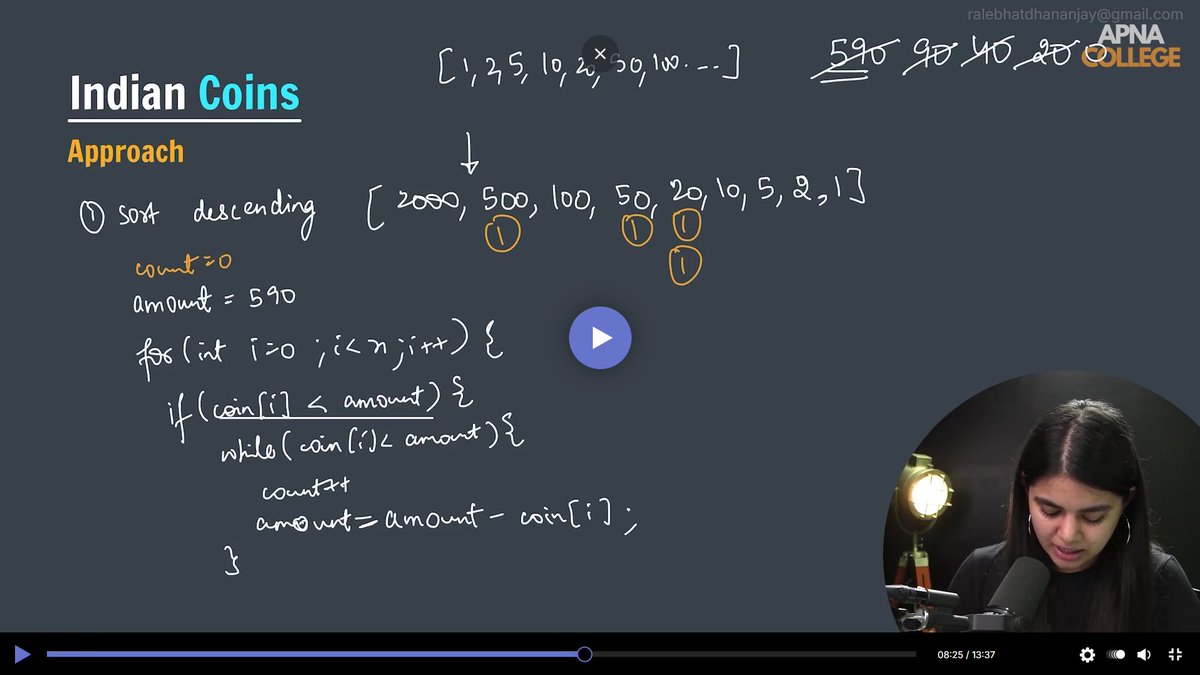 ralebhatdhananjay@gmail.com
APNA
COLLEGE
[1, 2, 5, 10, 20, 50, 100. ...]
590 90 40 20 0
Indian Coins
Approach
① sort descending [2000, 500, 100, 50, 20, 10, 5, 2, 1]
① ① ①
①
count=0
amount = 590
for(int i=0 ; i<n ; i++) {
if(coin[i] < amount) {
while(coin[i]< amount) {
count++
amount = amount - coin[i];
}
08:25 / 13:37